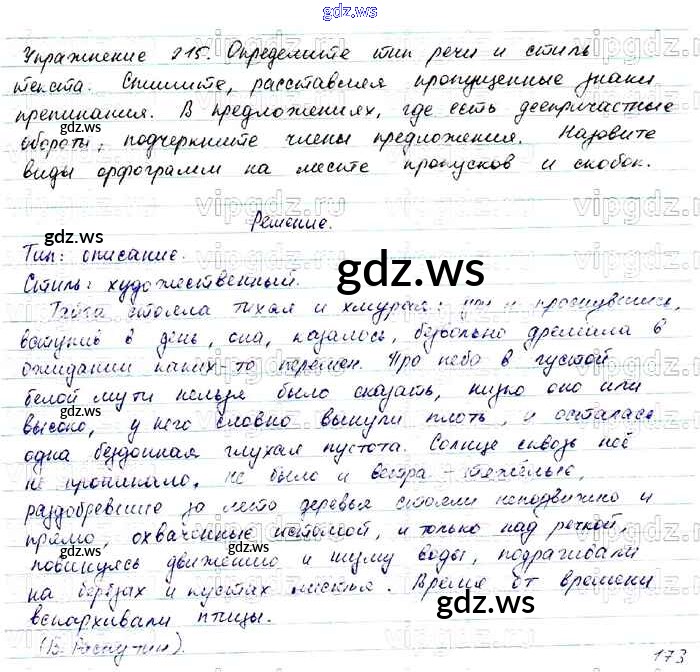 gdz.ws
Упражнение 215. Определите тип речи и стиль
текста. Спишите, расставляя пропущенные знаки
препинания. В предложениях, где есть деепричастные
gdz.ws
обороты, подчеркните члены предложения. Назовите
виды орфограмм на месте пропусков и скобок.
Решение.
gdz.ws
Тип: описание.
Стиль: художественный.
gdz.ws
Тайга стояла тихая и хмурая: проснувшись,
вступив в день, она, казалось, безвольно дремала в
ожидании каких то перемен. Про небо в густой
белой мути нельзя было сказать, низко оно или
gdz.ws
высоко, у него словно вынули плоть, и осталась
одна бездонная глухая пустота. Солнце сквозь неё
не проникало, не было и ветра – тяжёлые,
раздобревшие за лето деревья стояли неподвижно и
прямо, охваченные истомой, и только над речкой,
gdz.ws
повинуясь движению и шуму воды, подрагивали
на берёзах и кустах листья. Время от времени
вспархивали птицы.
gdz.ws
(В. Распутин).
173
gdz.ws
vipgdz.ru